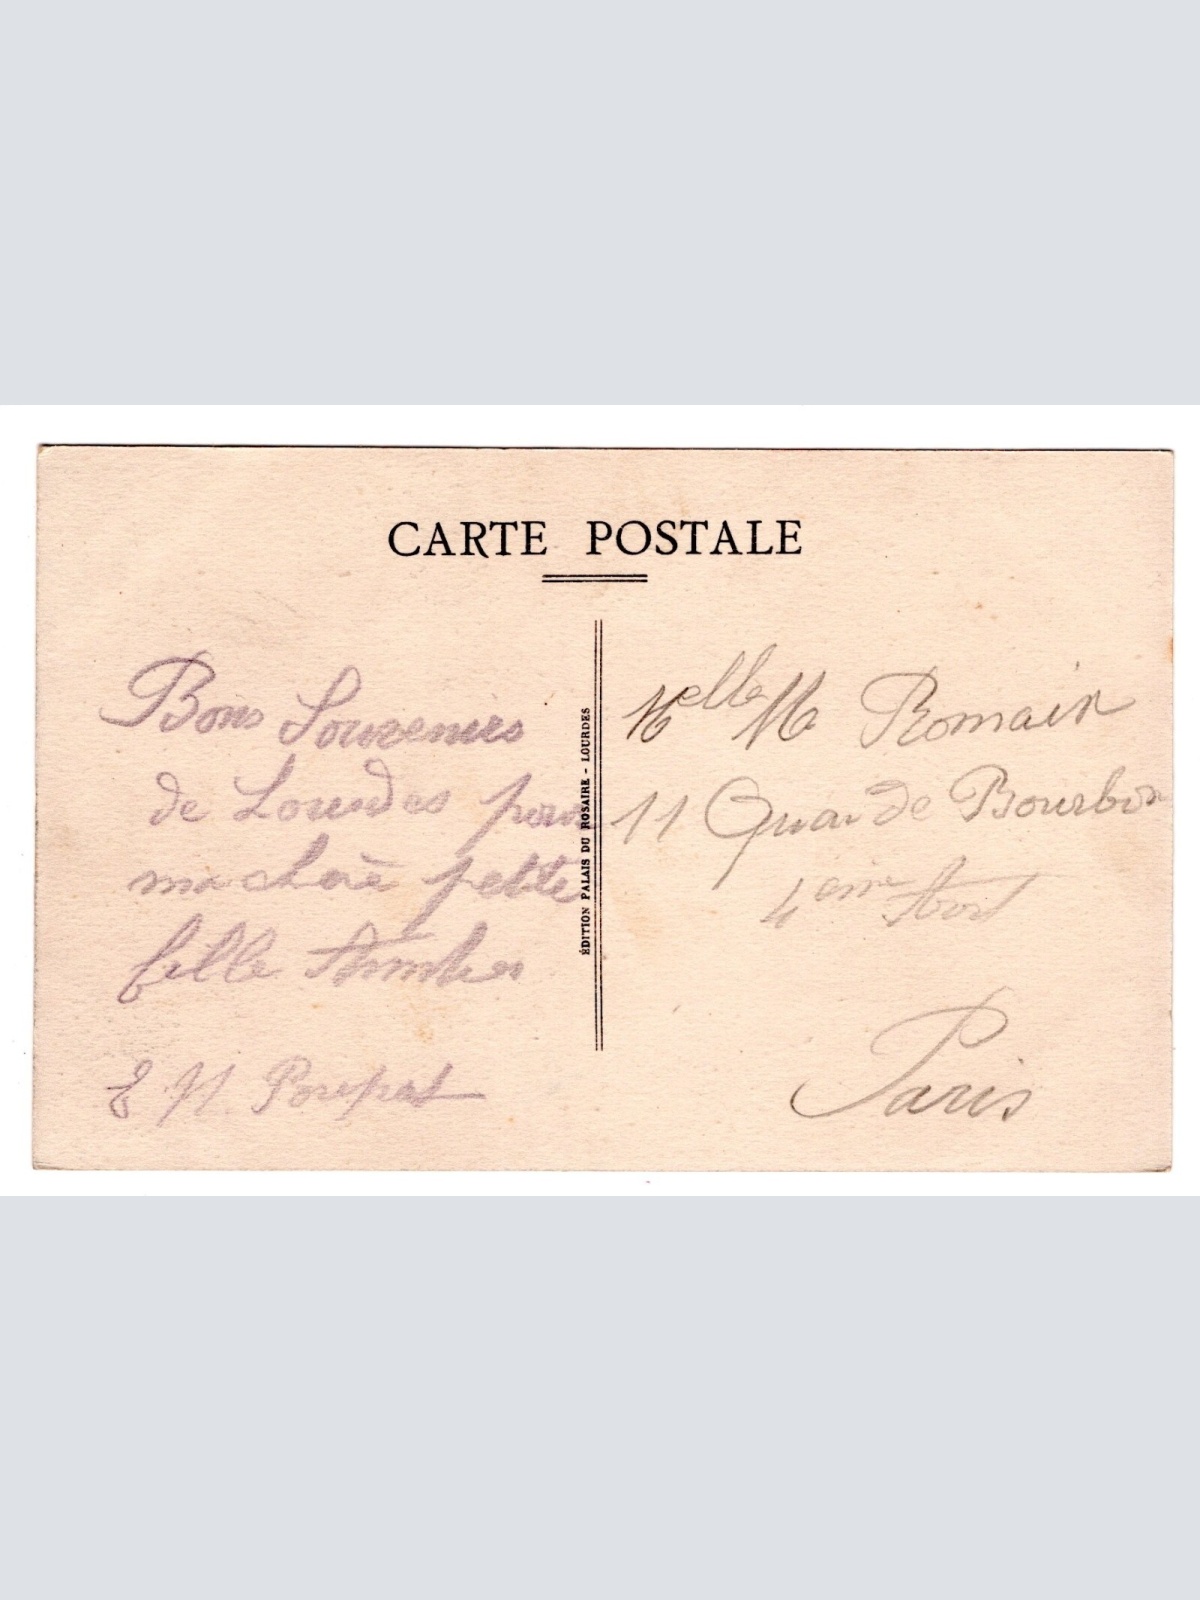 CARTE POSTALE
Bons Souvenirs
de Lourdes pour
ma chère petite
fille
E M. Poupat
ÉDITION PALAIS DU ROSAIRE - LOURDES
Melle M Romain
11 Quai de Bourbon
4eme Arrt
Paris